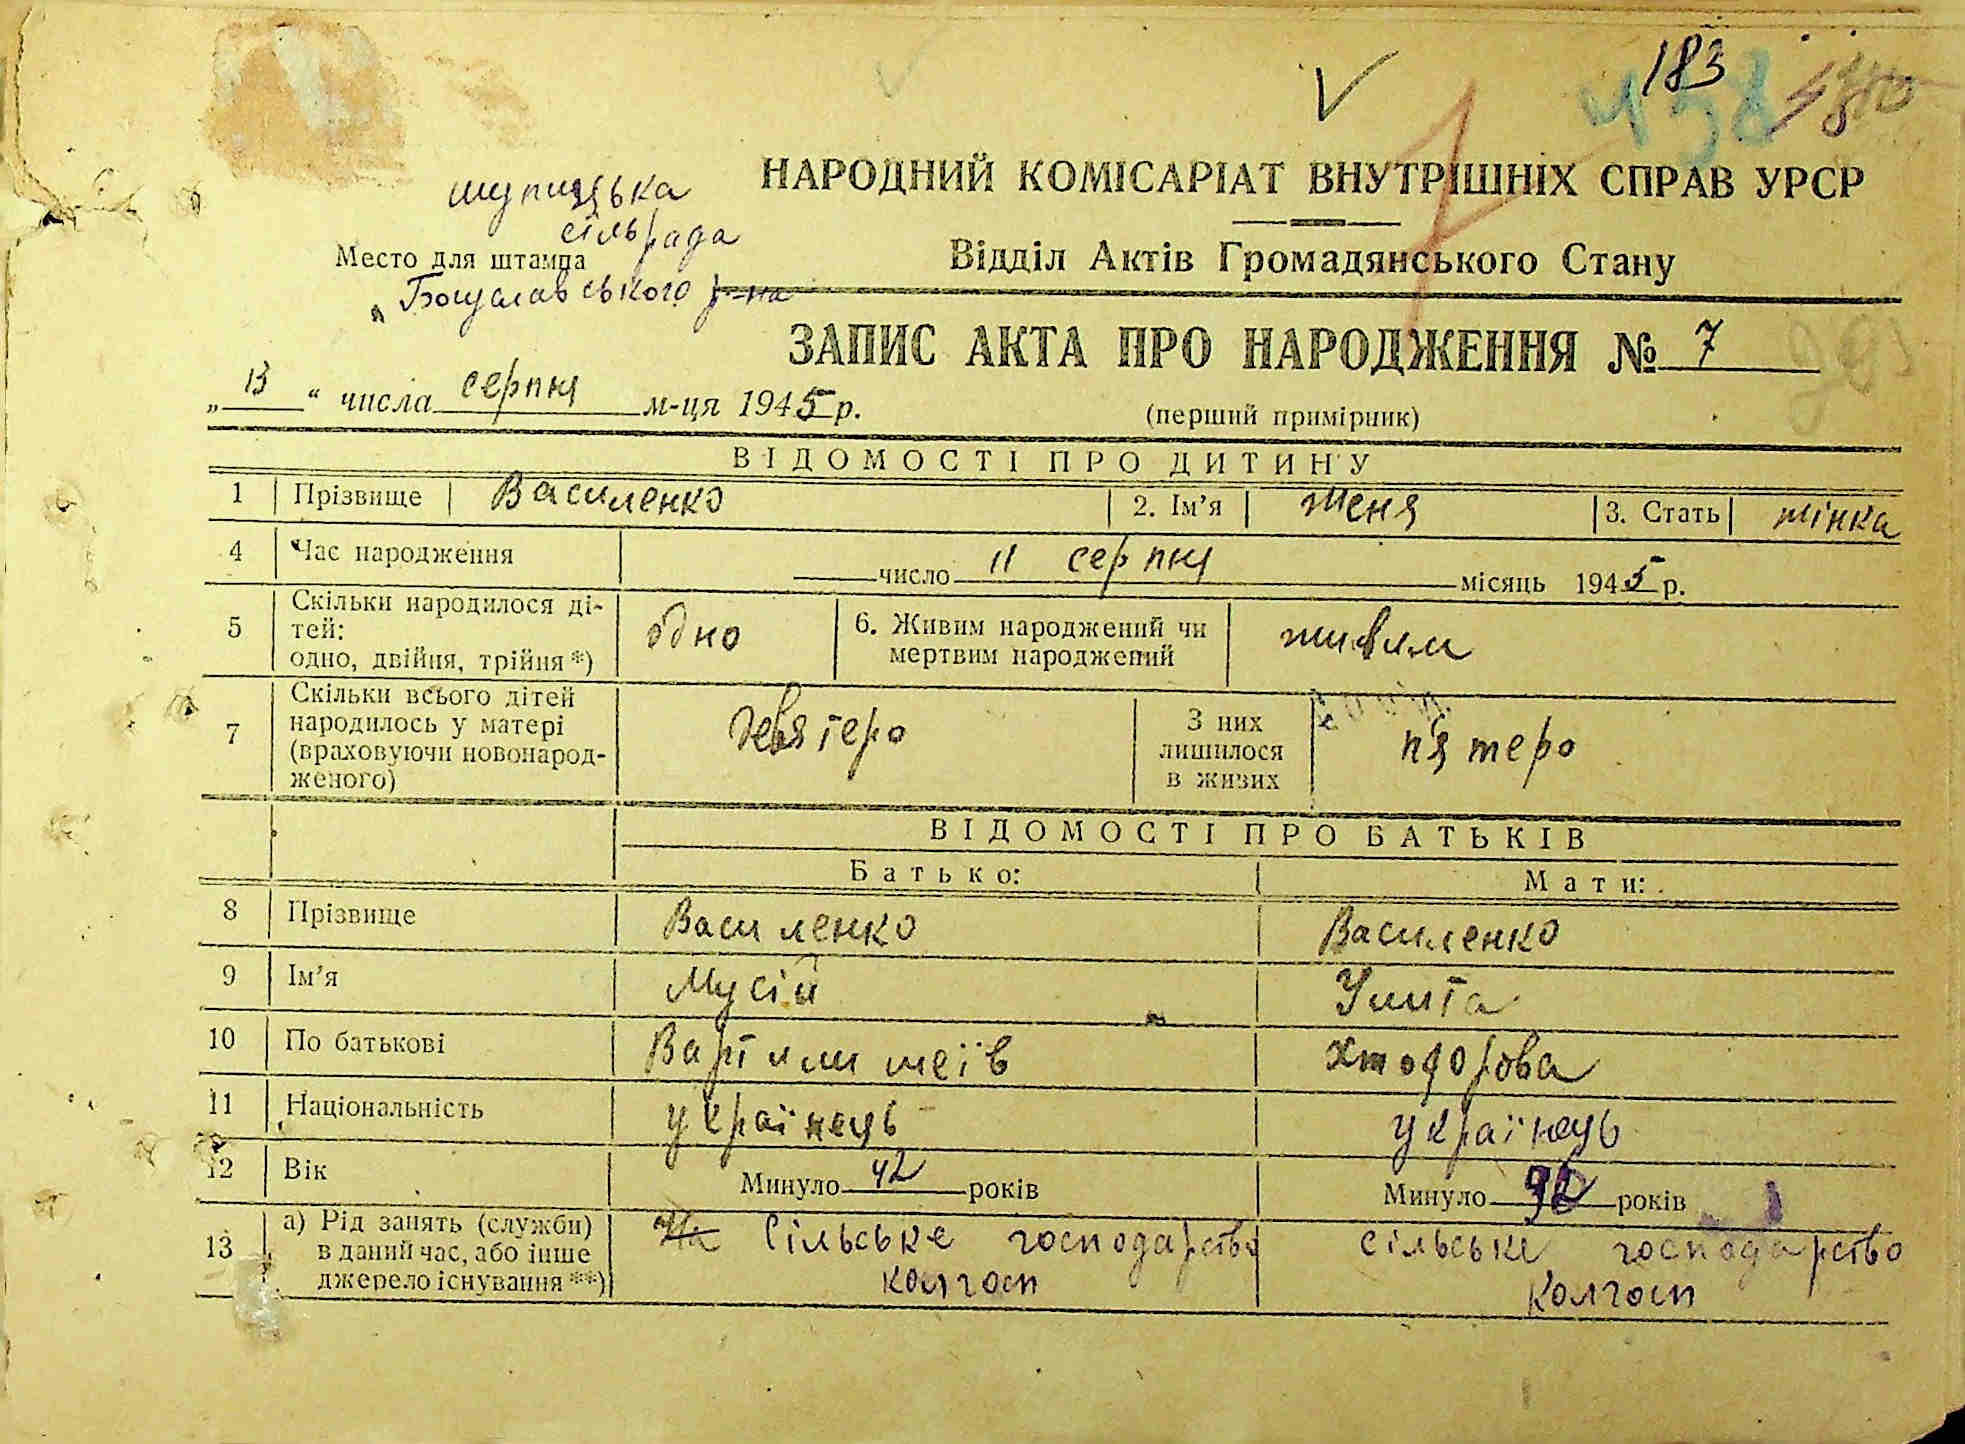 183
458
180
шупицька
сільрада
Место для штампа
Богуславського р-на
НАРОДНИЙ КОМІСАРІАТ ВНУТРІШНІХ СПРАВ УРСР
Відділ Актів Громадянського Стану
ЗАПИС АКТА ПРО НАРОДЖЕННЯ № 7
„13“ числа серпня м-ця 1945 р.
(перший примірник)
ВІДОМОСТІ ПРО ДИТИНУ
1 Прізвище Василенко 2. Ім’я Женя 3. Стать жінка
4 Час народження число 11 серпня місяць 1945 р.
5 Скільки народилося ді-
тей:
одно, двійня, трійня *) одно 6. Живим народжений чи
мертвим народжений живим
7 Скільки всього дітей
народилось у матері
(враховуючи новонарод-
женого) девятеро З них
лишилося
в живих п'ятеро
ВІДОМОСТІ ПРО БАТЬКІВ
Батько: Мати:
8 Прізвище Василенко Василенко
9 Ім’я Мусій Улита
10 По батькові Вартилимеїв Хтодорова
11 Національність українець українець
12 Вік Минуло 42 років Минуло 42 років
13 а) Рід занять (служби)
в даний час, або інше
джерело існування **)
На Сільське господарство
колгосп
сільське господарство
колгосп